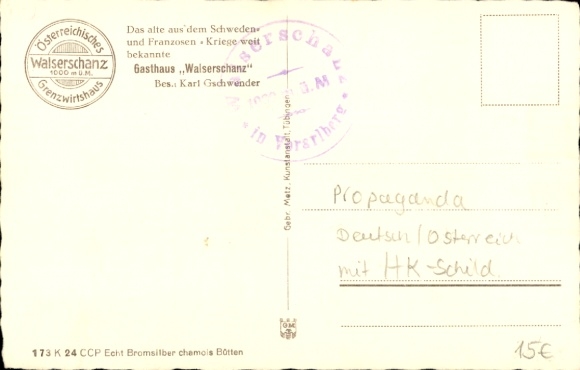 Österreichisches
Walserschanz
1000 m ü.M.
Grenzwirtshaus
Das alte aus dem Schweden-
und Franzosen-Kriege weit
bekannte
Gasthaus „Walserschanz"
Bes.: Karl Gschwender
Walserschanz
1000 m ü.M
in Vorarlberg
Gebr. Metz, Kunstanstalt, Tübingen
Propaganda
Deutsch/Österreich
mit HK-Schild.
173 K 24 CCP Echt Bromsilber chamois Bütten
15€